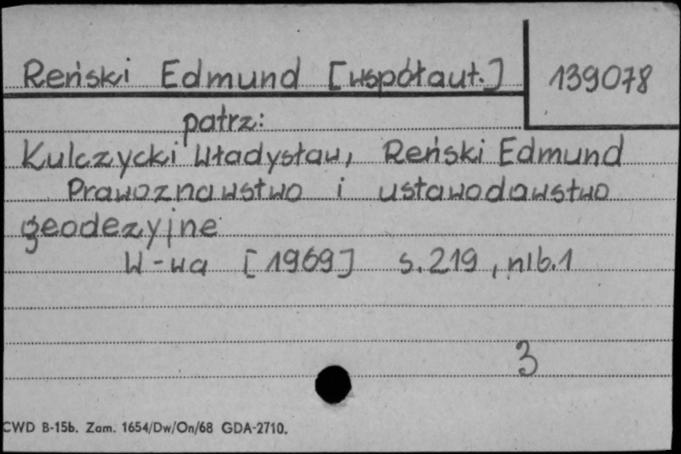 Reński Edmund [współaut.] 139078
patrz:
Kulczycki Władysław, Reński Edmund
Prawoznawstwo i ustawodawstwo
geodezyjne
W-wa [1969] s.219, nlb.1
3
CWD B-15b. Zam. 1654/Dw/On/68 GDA-2710.